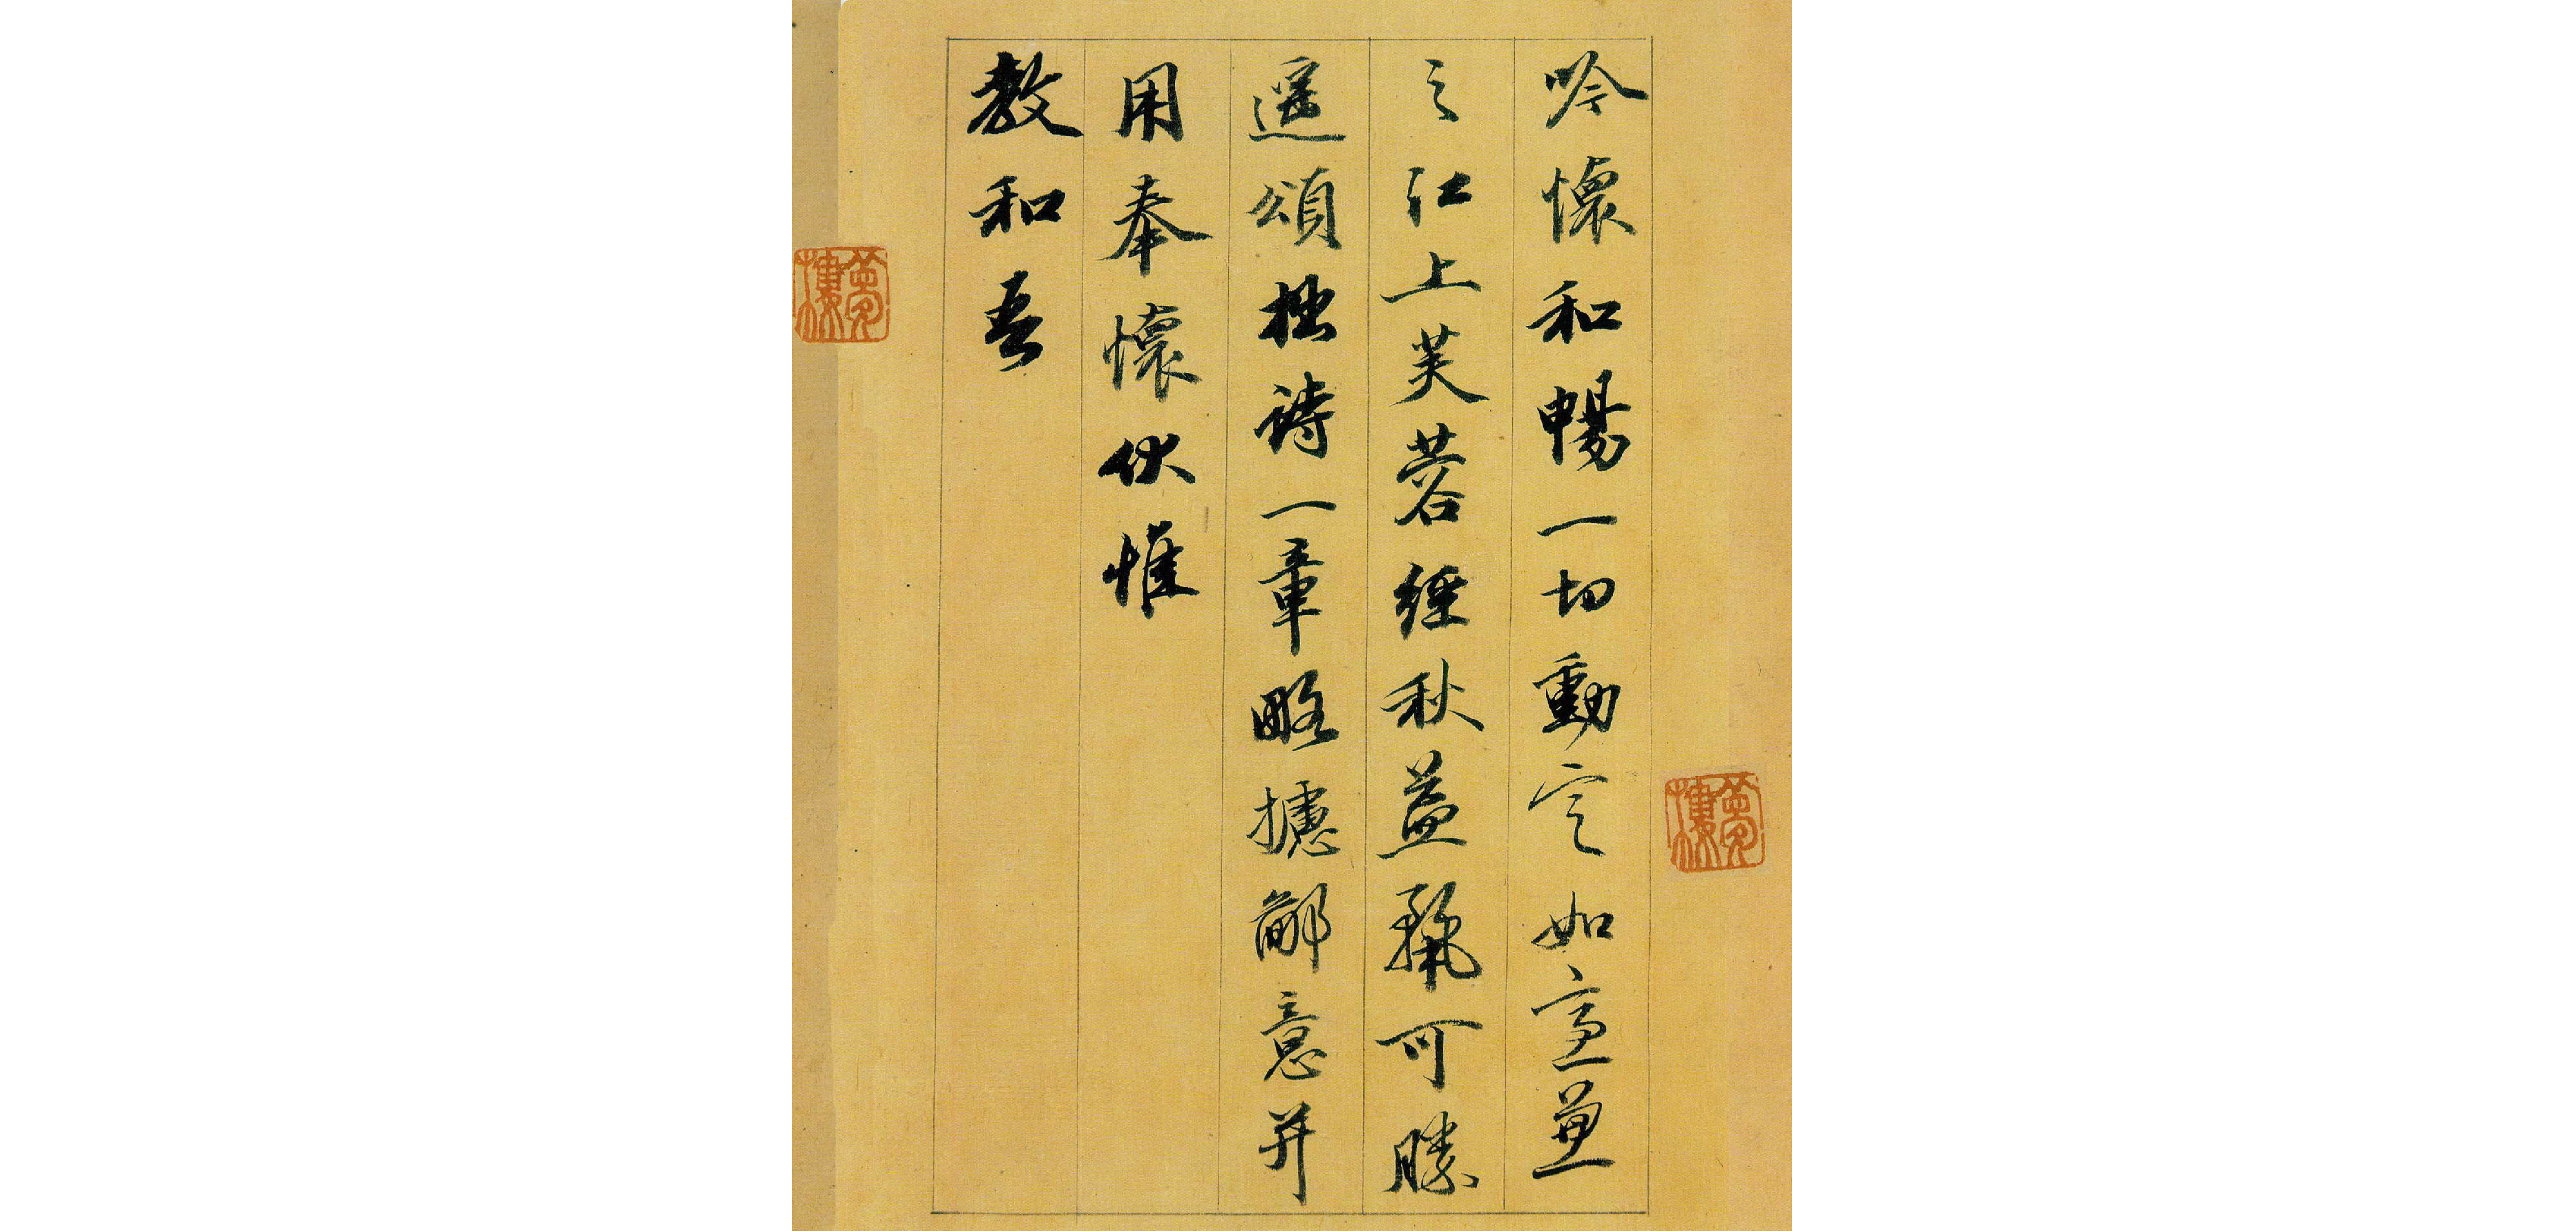 吟懷和暢一切動定如兼
之江上芙蓉經秋益可勝
遥頌拙詩一章略攄鄙意并
用奉懷伏惟
教和吾
夢樓
夢樓